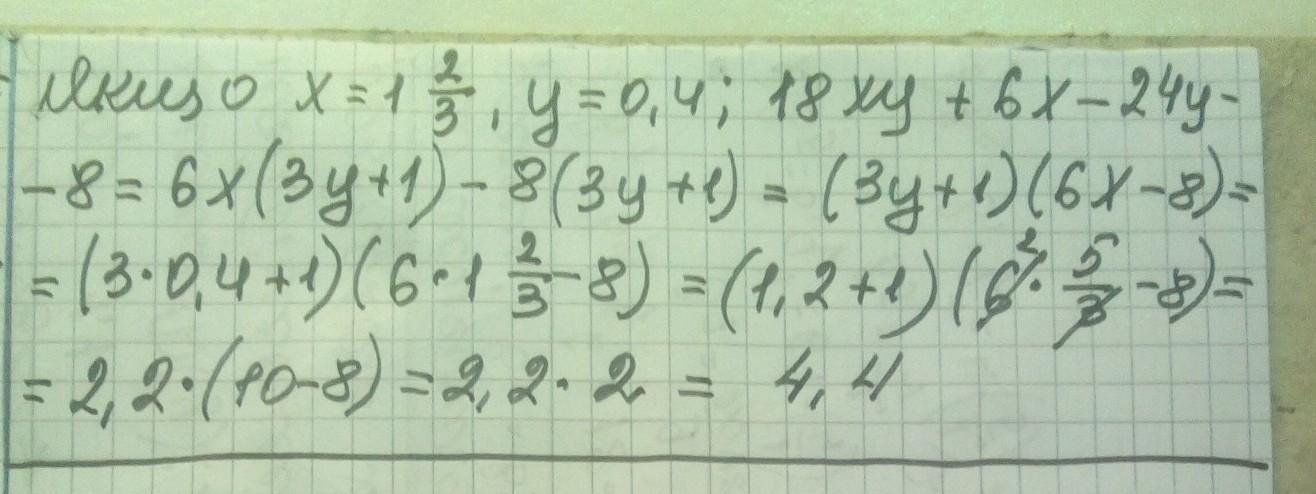 Якщо x = 1 2/3, y = 0,4; 18xy + 6x - 24y -
- 8 = 6x(3y+1) - 8(3y+1) = (3y+1)(6x-8) =
= (3·0,4+1)(6·1 2/3 - 8) = (1,2+1)(6² · 5/3 - 8) =
= 2,2·(10-8) = 2,2·2 = 4,4